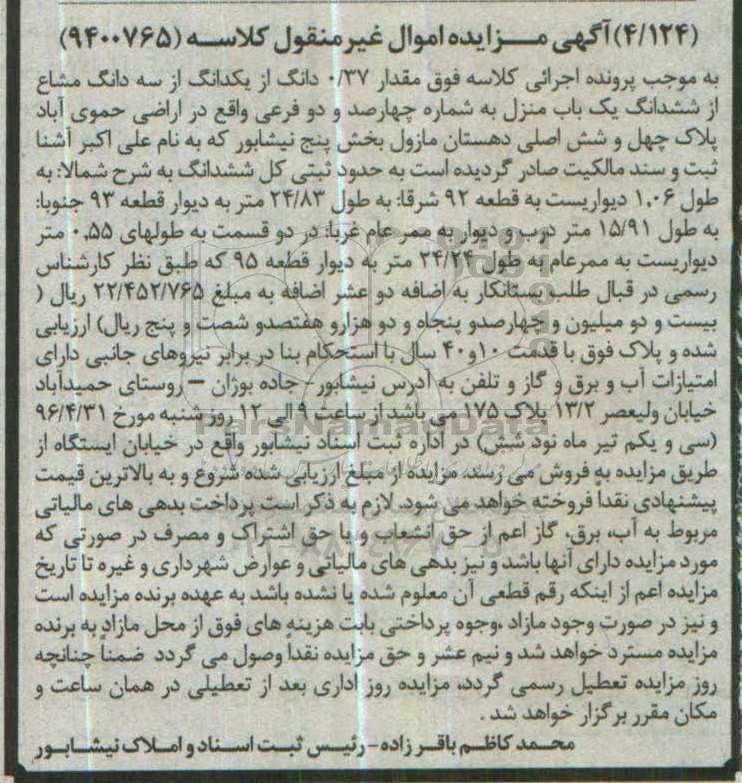 (۴/۱۲۴) آگهی مزایده اموال غیر منقول کلاسه (۹۴۰۰۷۶۵)
به موجب پرونده اجرائی کلاسه فوق مقدار ۰/۳۷ دانگ از یکدانگ از سه دانگ مشاع
از ششدانگ یک باب منزل به شماره چهارصد و دو فرعی واقع در اراضی حموی آباد
پلاک چهل و شش اصلی دهستان مازول بخش پنج نیشابور که به نام علی اکبر آشنا
ثبت و سند مالکیت صادر گردیده است به حدود ثبتی کل ششدانگ به شرح شمالا: به
طول ۱,۰۶ دیواریست به قطعه ۹۲ شرقا: به طول ۲۴/۸۳ متر به دیوار قطعه ۹۳ جنوبا:
به طول ۱۵/۹۱ متر درب و دیوار به ممر عام غربا: در دو قسمت به طولهای ۰,۵۵ متر
دیواریست به ممرعام به طول ۲۴/۲۴ متر به دیوار قطعه ۹۵ که طبق نظر کارشناس
رسمی در قبال طلب بستانکار به اضافه دو عشر اضافه به مبلغ ۲۲/۴۵۲/۷۶۵ ریال (
بیست و دو میلیون و چهارصدو پنجاه و دو هزارو هفتصدو شصت و پنج ریال) ارزیابی
شده و پلاک فوق با قدمت ۱۰و۴۰ سال با استحکام بنا در برابر نیروهای جانبی دارای
امتیازات آب و برق و گاز و تلفن به آدرس نیشابور- جاده بوژان – روستای حمیدآباد
خیابان ولیعصر ۱۳/۲ پلاک ۱۷۵ می باشد از ساعت ۹ الی ۱۲ روز شنبه مورخ ۹۶/۴/۳۱
(سی و یکم تیر ماه نود شش) در اداره ثبت اسناد نیشابور واقع در خیابان ایستگاه از
طریق مزایده به فروش می رسد. مزایده از مبلغ ارزیابی شده شروع و به بالاترین قیمت
پیشنهادی نقداً فروخته خواهد می شود. لازم به ذکر است پرداخت بدهی های مالیاتی
مربوط به آب، برق، گاز اعم از حق انشعاب و یا حق اشتراک و مصرف در صورتی که
مورد مزایده دارای آنها باشد و نیز بدهی های مالیاتی و عوارض شهرداری و غیره تا تاریخ
مزایده اعم از اینکه رقم قطعی آن معلوم شده یا نشده باشد به عهده برنده مزایده است
و نیز در صورت وجود مازاد ،وجوه پرداختی بابت هزینه های فوق از محل مازاد به برنده
مزایده مسترد خواهد شد و نیم عشر و حق مزایده نقداً وصول می گردد ضمناً چنانچه
روز مزایده تعطیل رسمی گردد، مزایده روز اداری بعد از تعطیلی در همان ساعت و
مکان مقرر برگزار خواهد شد .
محمد کاظم باقر زاده - رئیس ثبت اسناد و املاک نیشابور
ParsNamadData